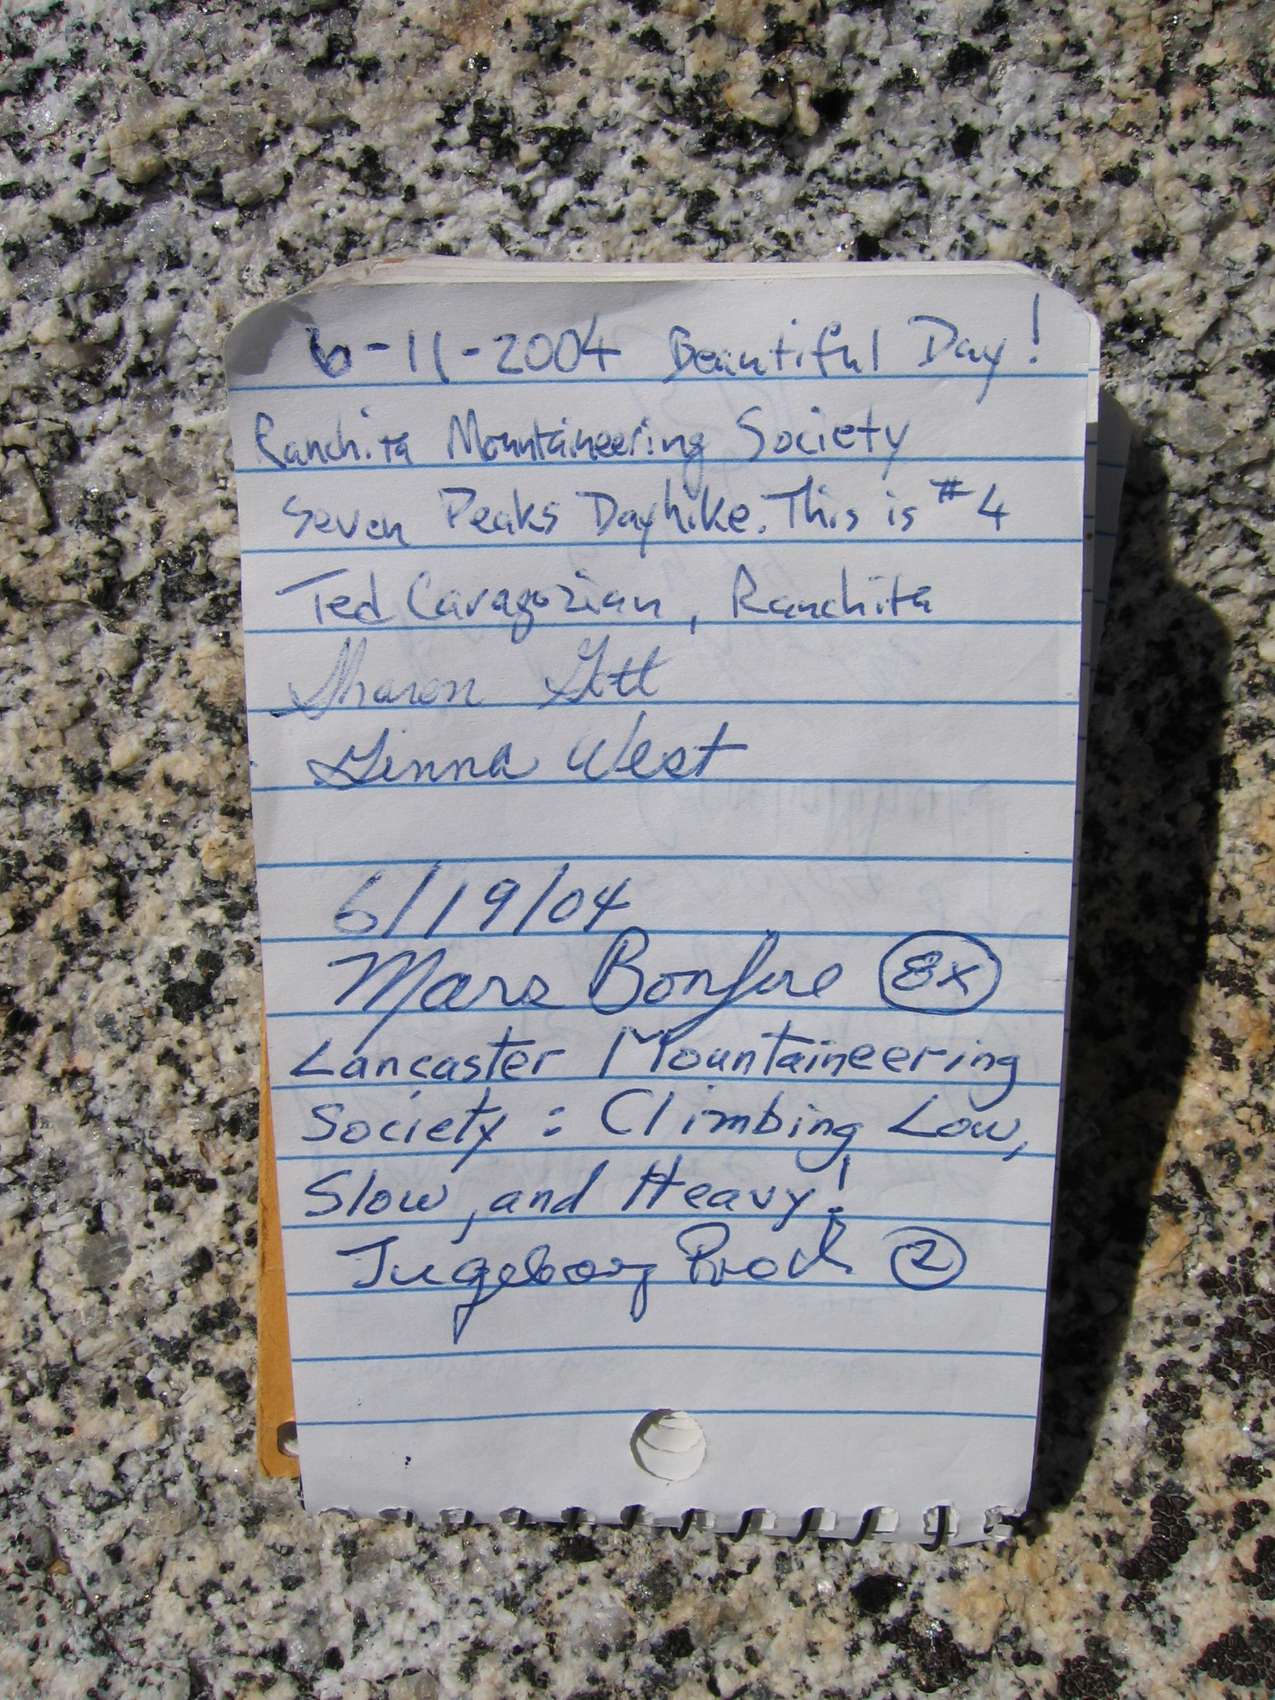 6-11-2004 Beautiful Day!
Ranchita Mountaineering Society
Seven Peaks Dayhike. This is #4
Ted Caragozian, Ranchita
Sharon Gott
Ginna West
6/19/04
Mars Bonfire 8x
Lancaster Mountaineering
Society: Climbing Low,
Slow, and Heavy!
2